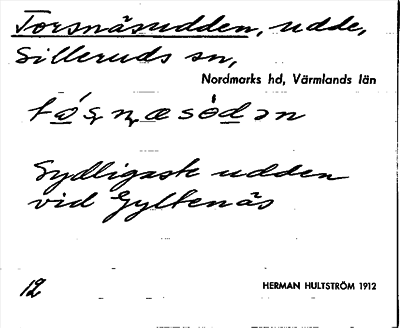 Torsnäsudden, udde,
Silleruds sn,
Nordmarks hd, Värmlands län
Sydligaste udden
vid Gyltenäs
12
HERMAN HULTSTRÖM 1912